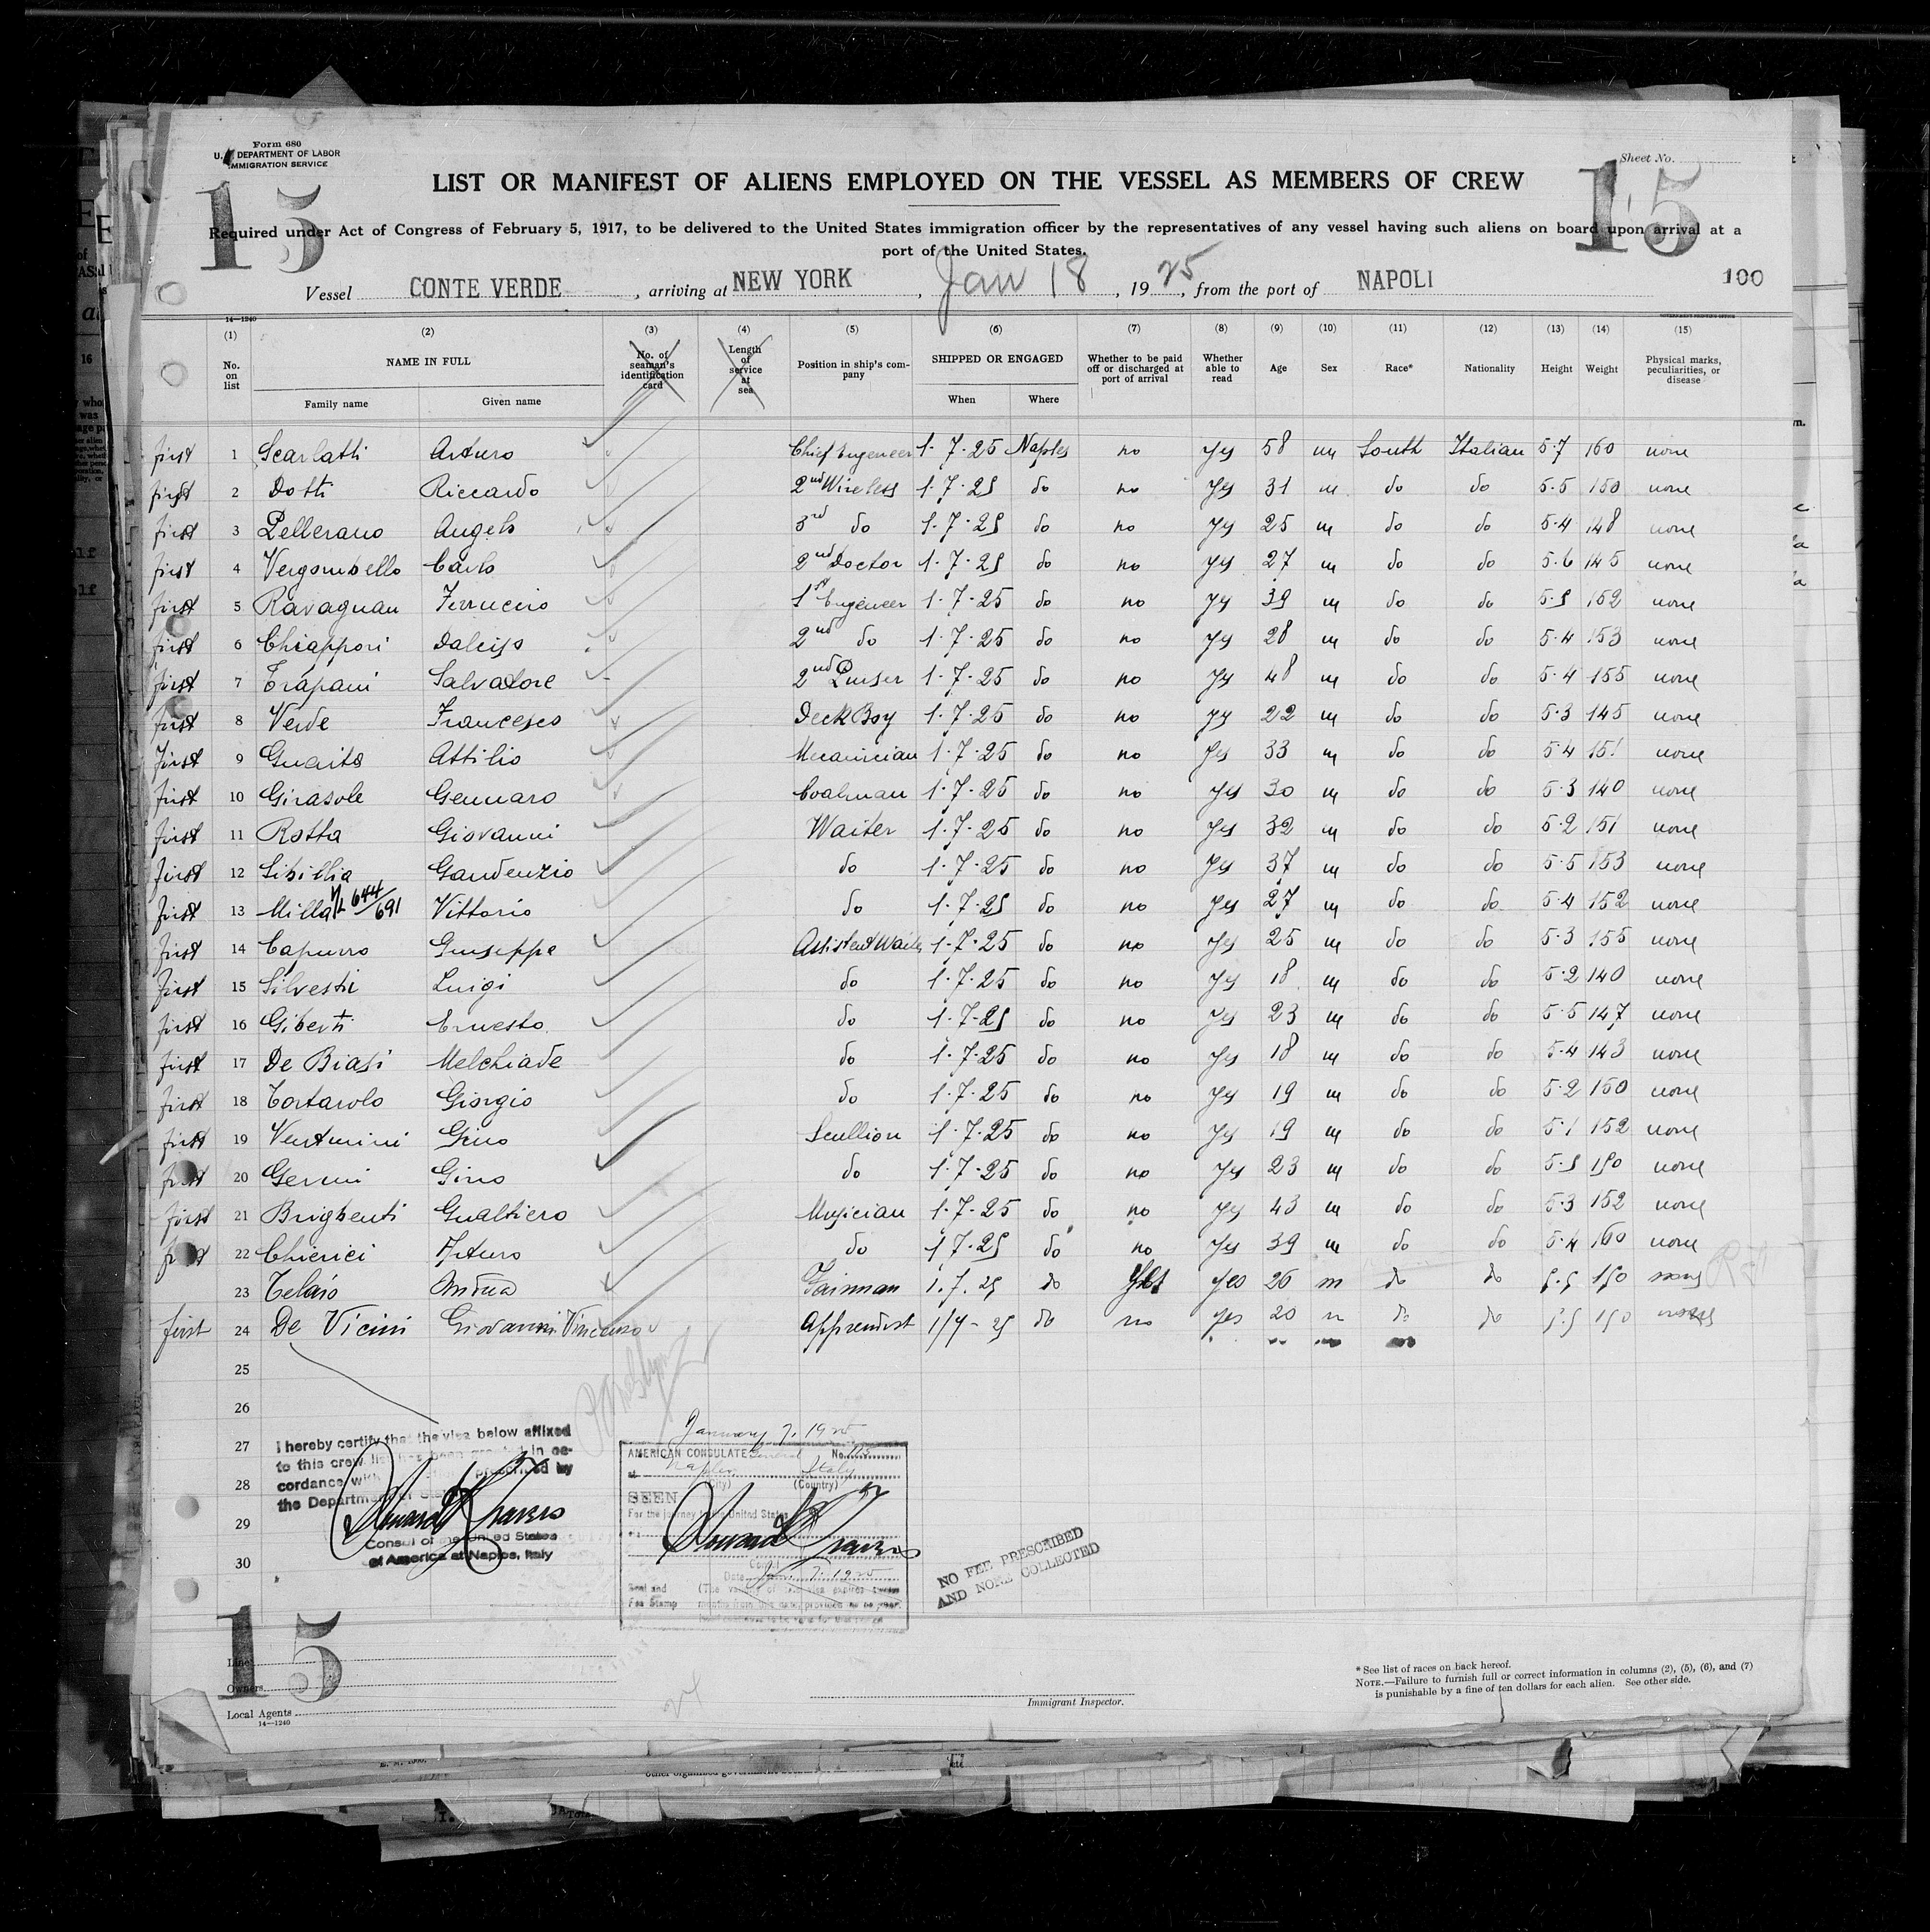 Form 680
U. S. DEPARTMENT OF LABOR
IMMIGRATION SERVICE
Sheet No.
15 15
LIST OR MANIFEST OF ALIENS EMPLOYED ON THE VESSEL AS MEMBERS OF CREW
Required under Act of Congress of February 5, 1917, to be delivered to the United States immigration officer by the representatives of any vessel having such aliens on board upon arrival at a
port of the United States.
Vessel CONTE VERDE, arriving at NEW YORK, Jan 18, 1925, from the port of NAPOLI 100
14—1240
(1) (2) (3) (4) (5) (6) (7) (8) (9) (10) (11) (12) (13) (14) (15)
No. on list NAME IN FULL No. of seaman's identification card Length of service at sea Position in ship's company SHIPPED OR ENGAGED Whether to be paid off or discharged at port of arrival Whether able to read Age Sex Race* Nationality Height Weight Physical marks, peculiarities, or disease
Family name Given name When Where
first 1 Scarlatti Arturo Chief Engeneer 1.7.25 Naples no yes 58 m South Italian 5.7 160 none
first 2 Dotti Riccardo 2nd Wireless 1.7.25 do no yes 31 m do do 5.5 150 none
first 3 Pellerano Angelo 3rd do 1.7.25 do no yes 25 m do do 5.4 148 none
first 4 Vergombello Carlo 2nd Doctor 1.7.25 do no yes 27 m do do 5.6 145 none
first 5 Ravagnan Ferruccio 1st Engeneer 1.7.25 do no yes 39 m do do 5.5 152 none
first 6 Chiappori 2nd do 1.7.25 do no yes 28 m do do 5.4 153 none
first 7 Trapani Salvatore 2nd Purser 1.7.25 do no yes 48 m do do 5.4 155 none
first 8 Verde Francesco Deck Boy 1.7.25 do no yes 22 m do do 5.3 145 none
first 9 Guaita Attilio Mecanician 1.7.25 do no yes 33 m do do 5.4 151 none
first 10 Girasole Gennaro Coalman 1.7.25 do no yes 30 m do do 5.3 140 none
first 11 Rotta Giovanni Waiter 1.7.25 do no yes 32 m do do 5.2 151 none
first 12 Sibillia Gaudenzio do 1.7.25 do no yes 37 m do do 5.5 153 none
first 13 Milla 644/691 Vittorio do 1.7.25 do no yes 27 m do do 5.4 152 none
first 14 Capurro Giuseppe Assistent Waiter 1.7.25 do no yes 25 m do do 5.3 155 none
first 15 Silvestri Luigi do 1.7.25 do no yes 18 m do do 5.2 140 none
first 16 Giberti Ernesto do 1.7.25 do no yes 23 m do do 5.5 147 none
first 17 De Biasi Melchiade do 1.7.25 do no yes 18 m do do 5.4 143 none
first 18 Tortarolo Giorgio do 1.7.25 do no yes 19 m do do 5.2 150 none
first 19 Venturini Gino Scullion 1.7.25 do no yes 19 m do do 5.1 152 none
first 20 Germi Gino do 1.7.25 do no yes 23 m do do 5.5 150 none
first 21 Brighenti Gualtiero Musician 1.7.25 do no yes 43 m do do 5.3 152 none
first 22 Chierici Arturo do 1.7.25 do no yes 39 m do do 5.4 160 none
23 Telaro Andrea 1.7.25 do yes yes 26 m do do 5.5 150 none
first 24 De Vicini Giovanni Vincenzo Apprendist 1/7-25 do no yes 20 m do do 5.5 150 none
25
26
27
28
29
30
I hereby certify that the visa below affixed
to this crew list has been granted in ac-
cordance with prescribed by
the Department of
Consul of the United States
of America at Naples, Italy
January 7, 1925
AMERICAN CONSULATE General No. 115
at Naples Italy
(City) (Country)
SEEN
For the journey to the United States
Consul
Date Jan. 7. 1925
Seal and
Fee Stamp
(The validity of this visa expires twelve
months from this date, provided
NO FEE PRESCRIBED
AND NONE COLLECTED
15
Line
Owners
Local Agents
14—1240
24
Immigrant Inspector.
* See list of races on back hereof.
NOTE.—Failure to furnish full or correct information in columns (2), (5), (6), and (7)
is punishable by a fine of ten dollars for each alien. See other side.